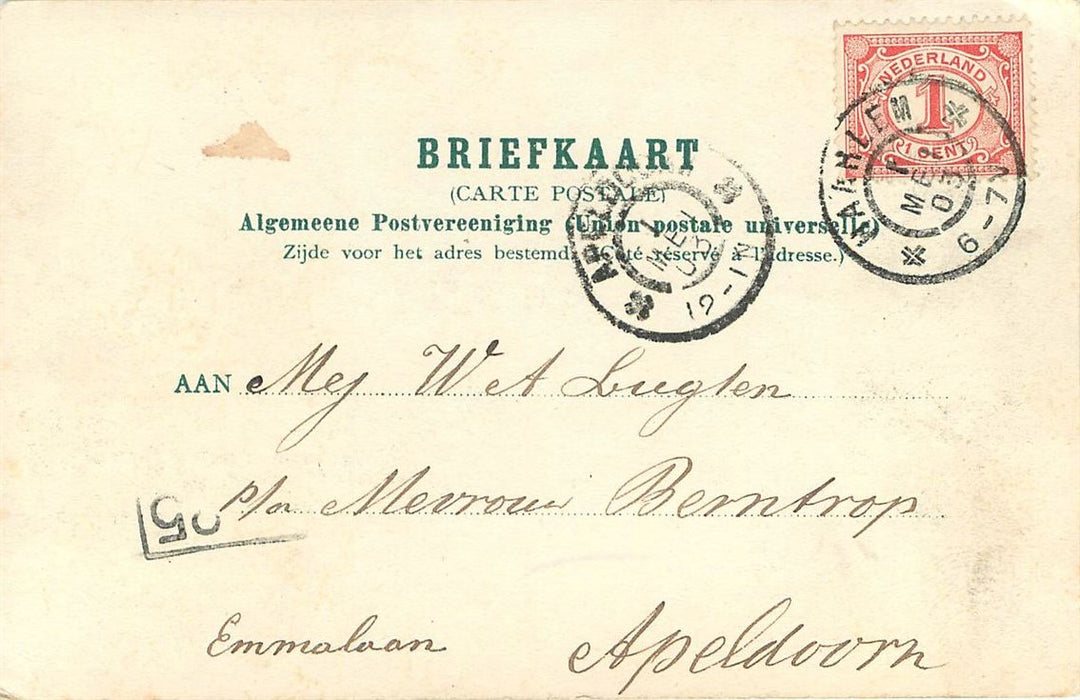 NEDERLAND
1
1 CENT
HAARLEM
MEI
03
6-7
BRIEFKAART
(CARTE POSTALE)
Algemeene Postvereeniging (Union postale universelle)
Zijde voor het adres bestemd. (Côté réservé à l'adresse.)
APELDOORN
1
MEI
03
12-1N
AAN Mej W A Lugten
p/a Mevrouw Berntrop
Emmalaan Apeldoorn